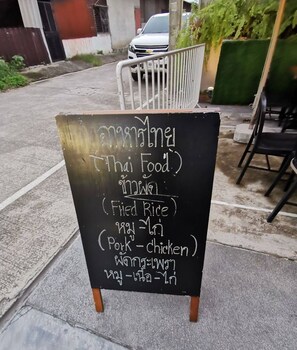 อาหารไทย
(Thai Food)
ข้าวผัด
(Fried Rice)
หมู-ไก่
(Pork-chicken)
ผัดกระเพรา
หมู-เนื้อ-ไก่